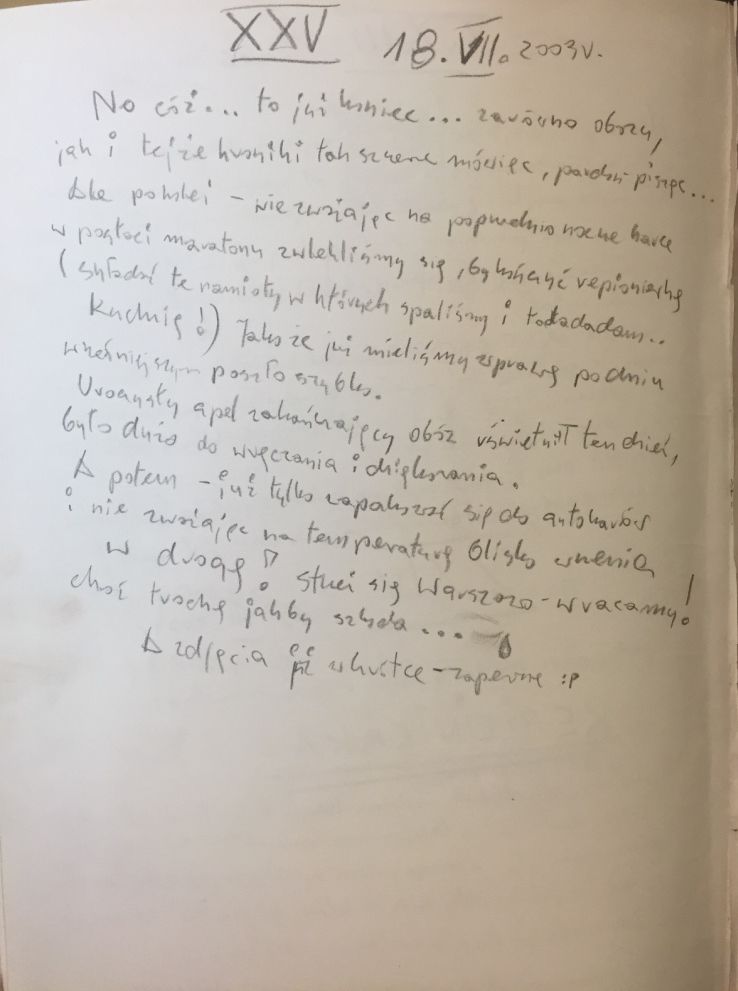 XXV 18.VII.2003r.
No cóż... to już koniec... zarówno obozu,
jak i tejże kroniki tak szczerze mówiąc, pardon-pisząc...
Ale po kolei - nie zważając na popołudnio nocne harce
w postaci maratonu zwlekliśmy się, by kończyć
(składać te namioty w których spaliśmy i tadadadam..
Kuchnię!) Jako że już mieliśmy wprawę po dniu
wcześniejszym poszło szybko.
Uroczysty apel zakańczający obóz uświetnił ten dzień,
było dużo do wręczania i dziękowania.
A potem - już tylko zapakować się do autokarów
i nie zważając na temperaturę blisko wrzenia
w drogę! Strzeż się Warszawo - wracamy!
choć trochę jakby szkoda...
A zdjęcia już wkrótce - zapewne :P